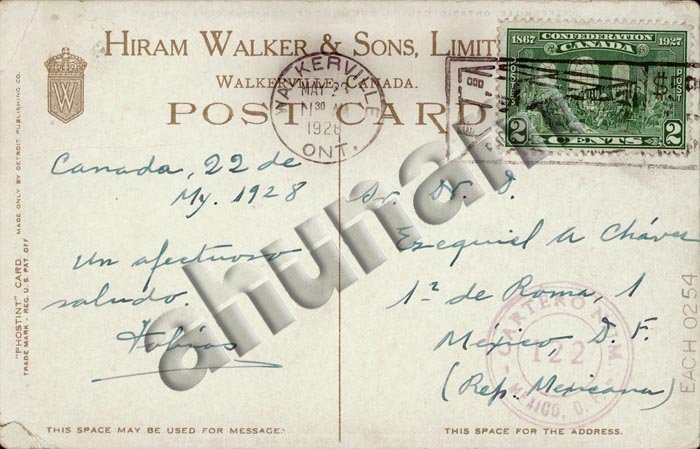 HIRAM WALKER & SONS, LIMIT
WALKERVILLE, CANADA.
POST CARD
W
WALKERVILLE
MAY 2
11 30 AM
1928
ONT.
1867 CONFEDERATION 1927
CANADA
POSTES POST
2 CENTS 2
Canada, 22 de
My. 1928
Un afectuoso
saludo.
Tobias
Sr. Dr. D.
Ezequiel A Chávez
1ª de Roma, 1
México, D. F.
(Rep. Mexicana)
CARTERO NUM.
122
MEXICO, D.
ahunam
EACH 0254
"PHOSTINT" CARD. MADE ONLY BY DETROIT PUBLISHING CO.
TRADE MARK - REG. U.S. PAT. OFF.
THIS SPACE MAY BE USED FOR MESSAGE.
THIS SPACE IS FOR THE ADDRESS.